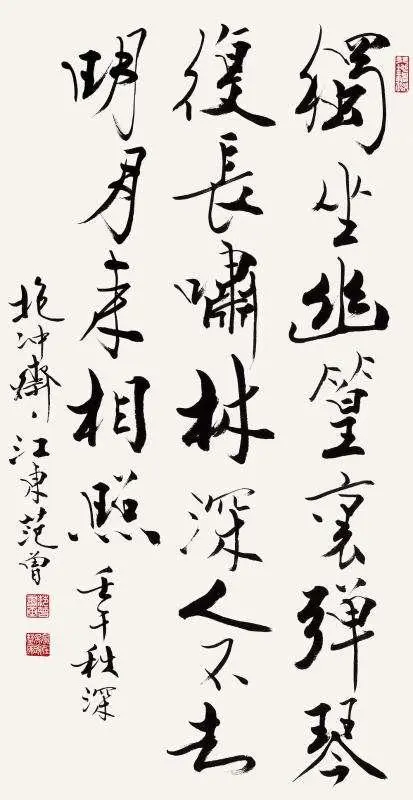 獨坐幽篁裏弹琴
復長嘯林深人不去
明月来相照 壬午秋深
抱冲齋、江東范曾